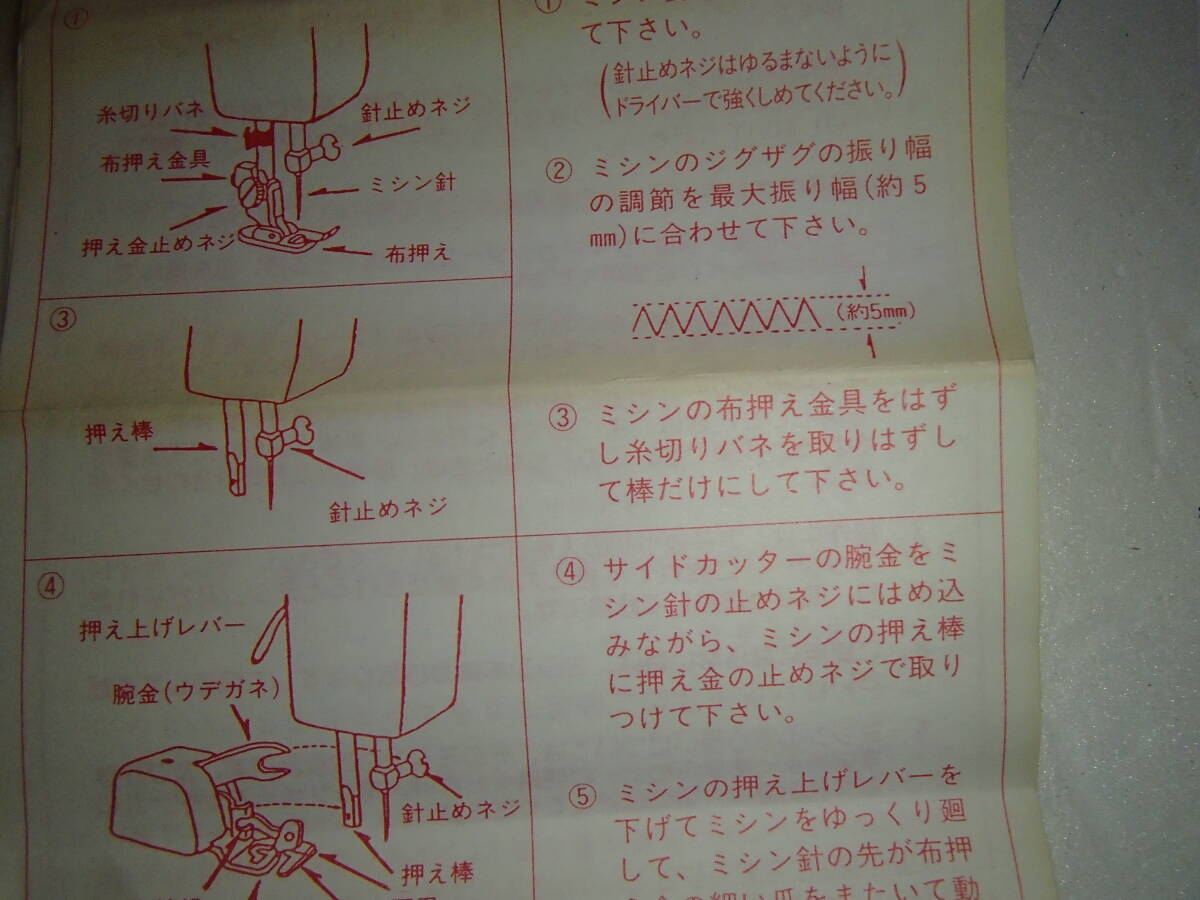 ①
糸切りバネ
針止めネジ
布押え金具
ミシン針
押え金止めネジ
布押え
①
て下さい。
(針止めネジはゆるまないように
ドライバーで強くしめてください。)
② ミシンのジグザグの振り幅
の調節を最大振り幅(約5
mm)に合わせて下さい。
(約5mm)
③
押え棒
針止めネジ
③ ミシンの布押え金具をはず
し糸切りバネを取りはずし
て棒だけにして下さい。
④
押え上げレバー
腕金(ウデガネ)
針止めネジ
押え棒
④ サイドカッターの腕金をミ
シン針の止めネジにはめ込
みながら、ミシンの押え棒
に押え金の止めネジで取り
つけて下さい。
⑤ ミシンの押え上げレバーを
下げてミシンをゆっくり廻
して、ミシン針の先が布押
え金の細い爪をまたいて動